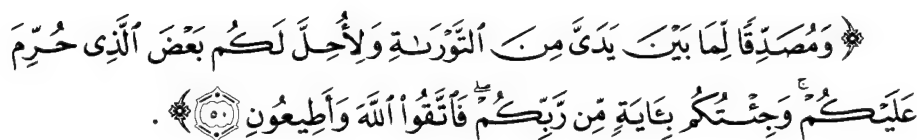 ﴿ وَمُصَدِّقًا لِّمَا بَيْنَ يَدَىَّ مِنَ التَّوْرَىٰةِ وَلِأُحِلَّ لَكُم بَعْضَ الَّذِى حُرِّمَ
عَلَيْكُمْ ۚ وَجِئْتُكُم بِـَٔايَةٍ مِّن رَّبِّكُمْ ۖ فَٱتَّقُوا۟ اللَّهَ وَأَطِيعُونِ ۝٥٠ ﴾ .